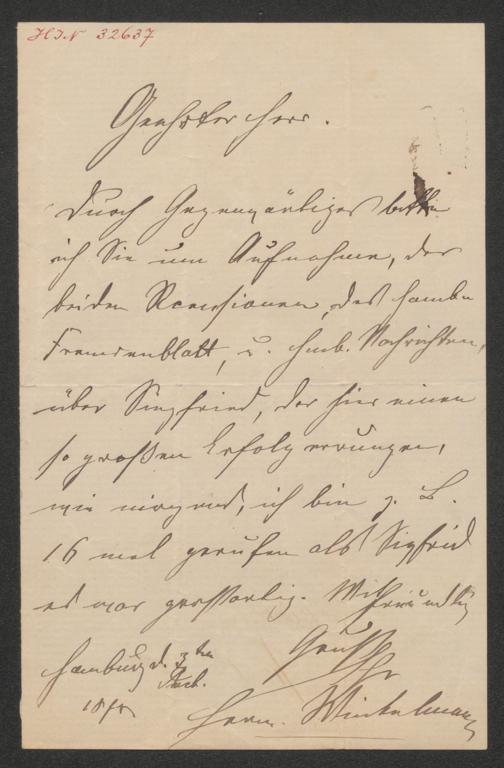 HIN 32637
Geehrter Herr.
Durch Gegenwärtiges bitte
ich Sie um Aufnahme, der
beiden Recensionen, des Hamb.
Fremdenblatt, u. Hmb. Nachrichten,
über Siegfried, der hier einen
so großen Erfolg errungen,
wie nirgend, ich bin z. B.
16 mal gerufen als Sigfrid
es war großartig. Mit
freundlig
Gruß
Ihr
Hamburg d. 3ten
18
Herm. Winkelmann